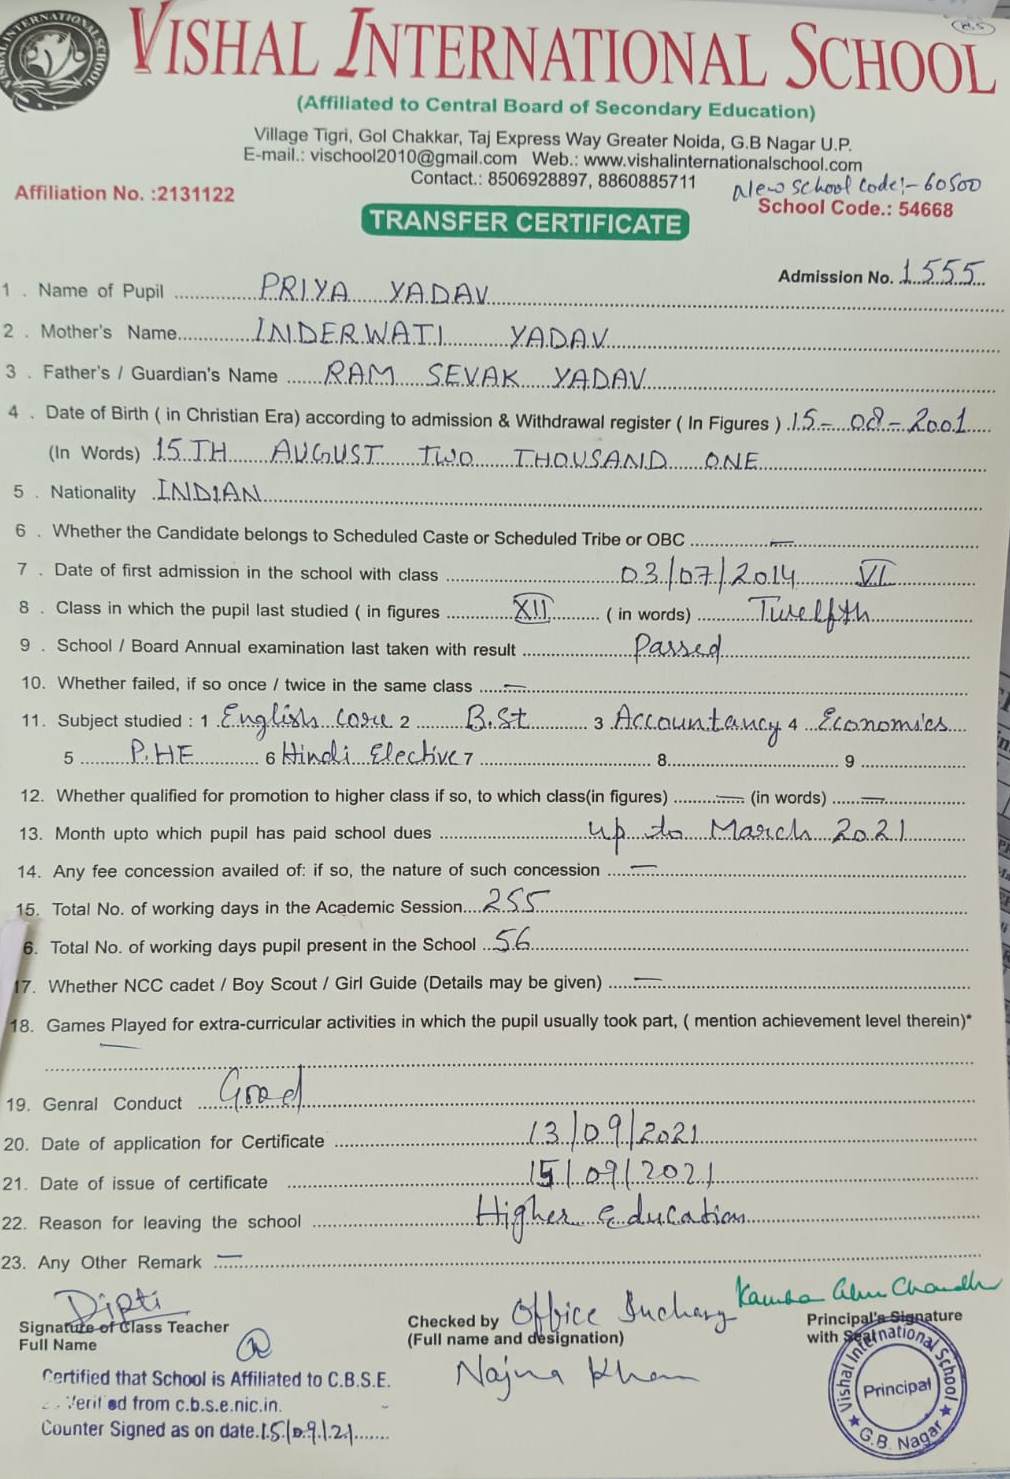 VISHAL INTERNATIONAL SCHOOL
(Affiliated to Central Board of Secondary Education)
Village Tigri, Gol Chakkar, Taj Express Way Greater Noida, G.B Nagar U.P.
E-mail.: vischool2010@gmail.com Web.: www.vishalinternationalschool.com
Contact.: 8506928897, 8860885711
New School Code:- 60500
Affiliation No. :2131122
School Code.: 54668
TRANSFER CERTIFICATE
Admission No. 1555
1 . Name of Pupil PRIYA YADAV
2 . Mother's Name INDERWATI YADAV
3 . Father's / Guardian's Name RAM SEVAK YADAV
4 . Date of Birth ( in Christian Era) according to admission & Withdrawal register ( In Figures ) 15-08-2001
(In Words) 15TH AUGUST TWO THOUSAND ONE
5 . Nationality INDIAN
6 . Whether the Candidate belongs to Scheduled Caste or Scheduled Tribe or OBC —
7 . Date of first admission in the school with class 03/07/2014 VI
8 . Class in which the pupil last studied ( in figures XII ( in words) Twelfth
9 . School / Board Annual examination last taken with result Passed
10. Whether failed, if so once / twice in the same class —
11. Subject studied : 1 English core 2 B.St 3 Accountancy 4 Economics
5 P.HE 6 Hindi Elective 7 8 9
12. Whether qualified for promotion to higher class if so, to which class(in figures) — (in words) —
13. Month upto which pupil has paid school dues up to March 2021
14. Any fee concession availed of: if so, the nature of such concession —
15. Total No. of working days in the Academic Session 255
6. Total No. of working days pupil present in the School 56
17. Whether NCC cadet / Boy Scout / Girl Guide (Details may be given) —
18. Games Played for extra-curricular activities in which the pupil usually took part, ( mention achievement level therein)*
—
19. Genral Conduct Good
20. Date of application for Certificate 13/09/2021
21. Date of issue of certificate 15/09/2021
22. Reason for leaving the school Higher Education
23. Any Other Remark —
Dipti
Signature of Class Teacher
Full Name
Checked by Office Incharg
(Full name and designation)
Najma Khan
Principal's Signature
with Seal
Vishal International School
Principal
G.B. Nagar
Certified that School is Affiliated to C.B.S.E.
Verified from c.b.s.e.nic.in.
Counter Signed as on date. 15/09/21